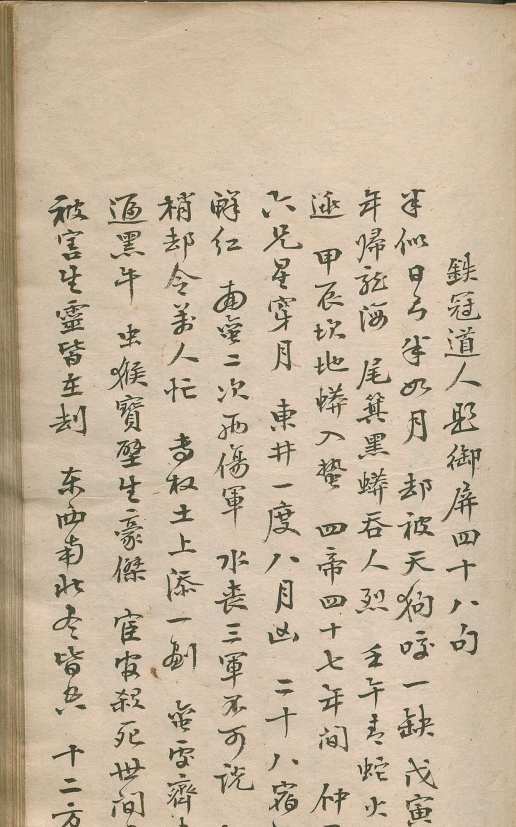 鉄冠道人題御屏四十八句
半似日兮半如月　却被天狗咬一缺　戊寅
年歸龍海　尾箕黑蟒吞人烈　壬午青蛇火
遜　甲辰坎地蟒入蟄　四帝四十七年間　仲
六兄星穿月　東井一度八月凶　二十八宿
鮮紅　南蛮二次兩傷軍　水喪三軍不可説
稍却令萬人忙　專权土上添一劃　蛮安齊
逼黑午　虫猴寶壂生豪傑　宦官殺死世間
被害生靈皆在刦　东西南北冬皆  十二方